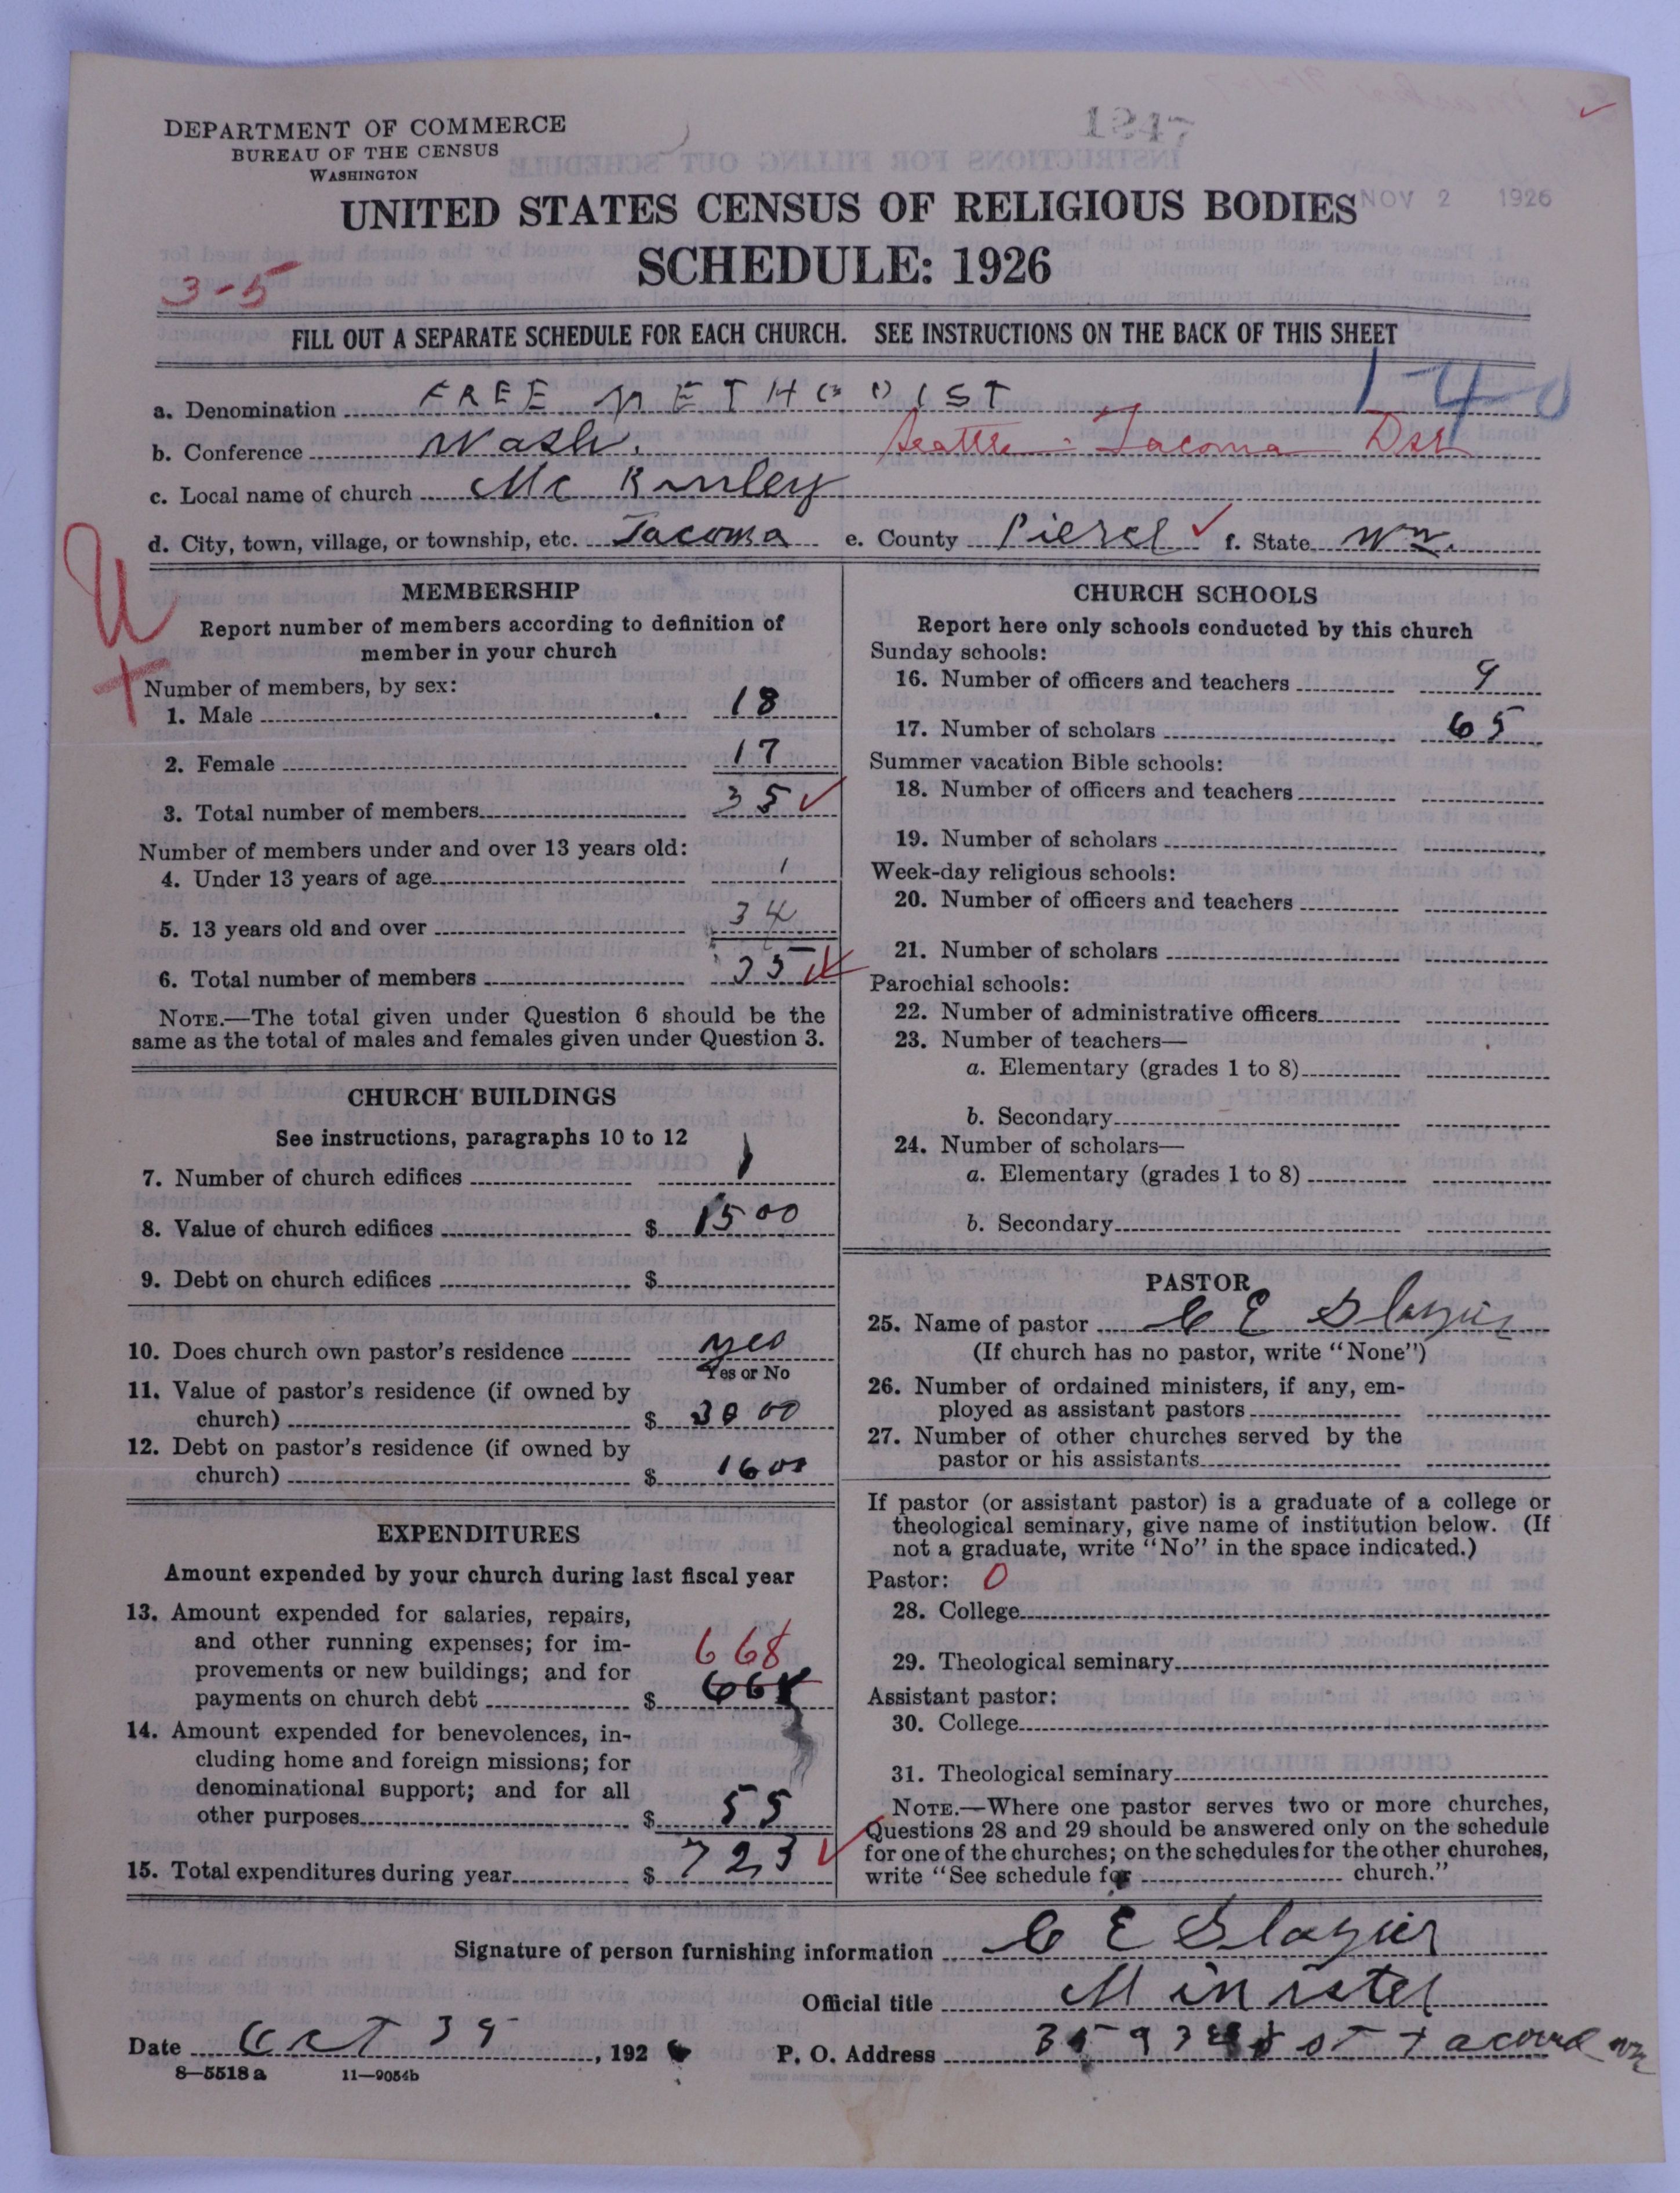 DEPARTMENT OF COMMERCE
BUREAU OF THE CENSUS
WASHINGTON
NOV 2 1926
UNITED STATES CENSUS OF RELIGIOUS BODIES
SCHEDULE: 1926
3-5
FILL OUT A SEPARATE SCHEDULE FOR EACH CHURCH. SEE INSTRUCTIONS ON THE BACK OF THIS SHEET
140
a. Denomination FREE METHODIST
b. Conference Wash. Seattle - Tacoma Dst
c. Local name of church McKinley
d. City, town, village, or township, etc. Tacoma e. County Pierce f. State Wn.
U
MEMBERSHIP
Report number of members according to definition of
member in your church
Number of members, by sex:
1. Male 18
2. Female 17
3. Total number of members 35
Number of members under and over 13 years old:
4. Under 13 years of age 1
5. 13 years old and over 34
6. Total number of members 35
NOTE.—The total given under Question 6 should be the
same as the total of males and females given under Question 3.
CHURCH BUILDINGS
See instructions, paragraphs 10 to 12
7. Number of church edifices 1
8. Value of church edifices $ 1500
9. Debt on church edifices $
10. Does church own pastor's residence yes
Yes or No
11. Value of pastor's residence (if owned by
church) $ 3000
12. Debt on pastor's residence (if owned by
church) $ 1600
EXPENDITURES
Amount expended by your church during last fiscal year
13. Amount expended for salaries, repairs,
and other running expenses; for im-
668
provements or new buildings; and for
payments on church debt $ 668
14. Amount expended for benevolences, in-
cluding home and foreign missions; for
denominational support; and for all
other purposes $ 55
15. Total expenditures during year $ 723
CHURCH SCHOOLS
Report here only schools conducted by this church
Sunday schools:
16. Number of officers and teachers 9
17. Number of scholars 65
Summer vacation Bible schools:
18. Number of officers and teachers
19. Number of scholars
Week-day religious schools:
20. Number of officers and teachers
21. Number of scholars
Parochial schools:
22. Number of administrative officers
23. Number of teachers—
a. Elementary (grades 1 to 8)
b. Secondary
24. Number of scholars—
a. Elementary (grades 1 to 8)
b. Secondary
PASTOR
25. Name of pastor C E Slazier
(If church has no pastor, write "None")
26. Number of ordained ministers, if any, em-
ployed as assistant pastors
27. Number of other churches served by the
pastor or his assistants
If pastor (or assistant pastor) is a graduate of a college or
theological seminary, give name of institution below. (If
not a graduate, write "No" in the space indicated.)
Pastor: 0
28. College
29. Theological seminary
Assistant pastor:
30. College
31. Theological seminary
NOTE.—Where one pastor serves two or more churches,
Questions 28 and 29 should be answered only on the schedule
for one of the churches; on the schedules for the other churches,
write "See schedule for church."
Signature of person furnishing information C E Slazier
Official title Minister
Date Oct 39, 1926 P. O. Address st Tacoma Wn
8—5518 a 11—9054b